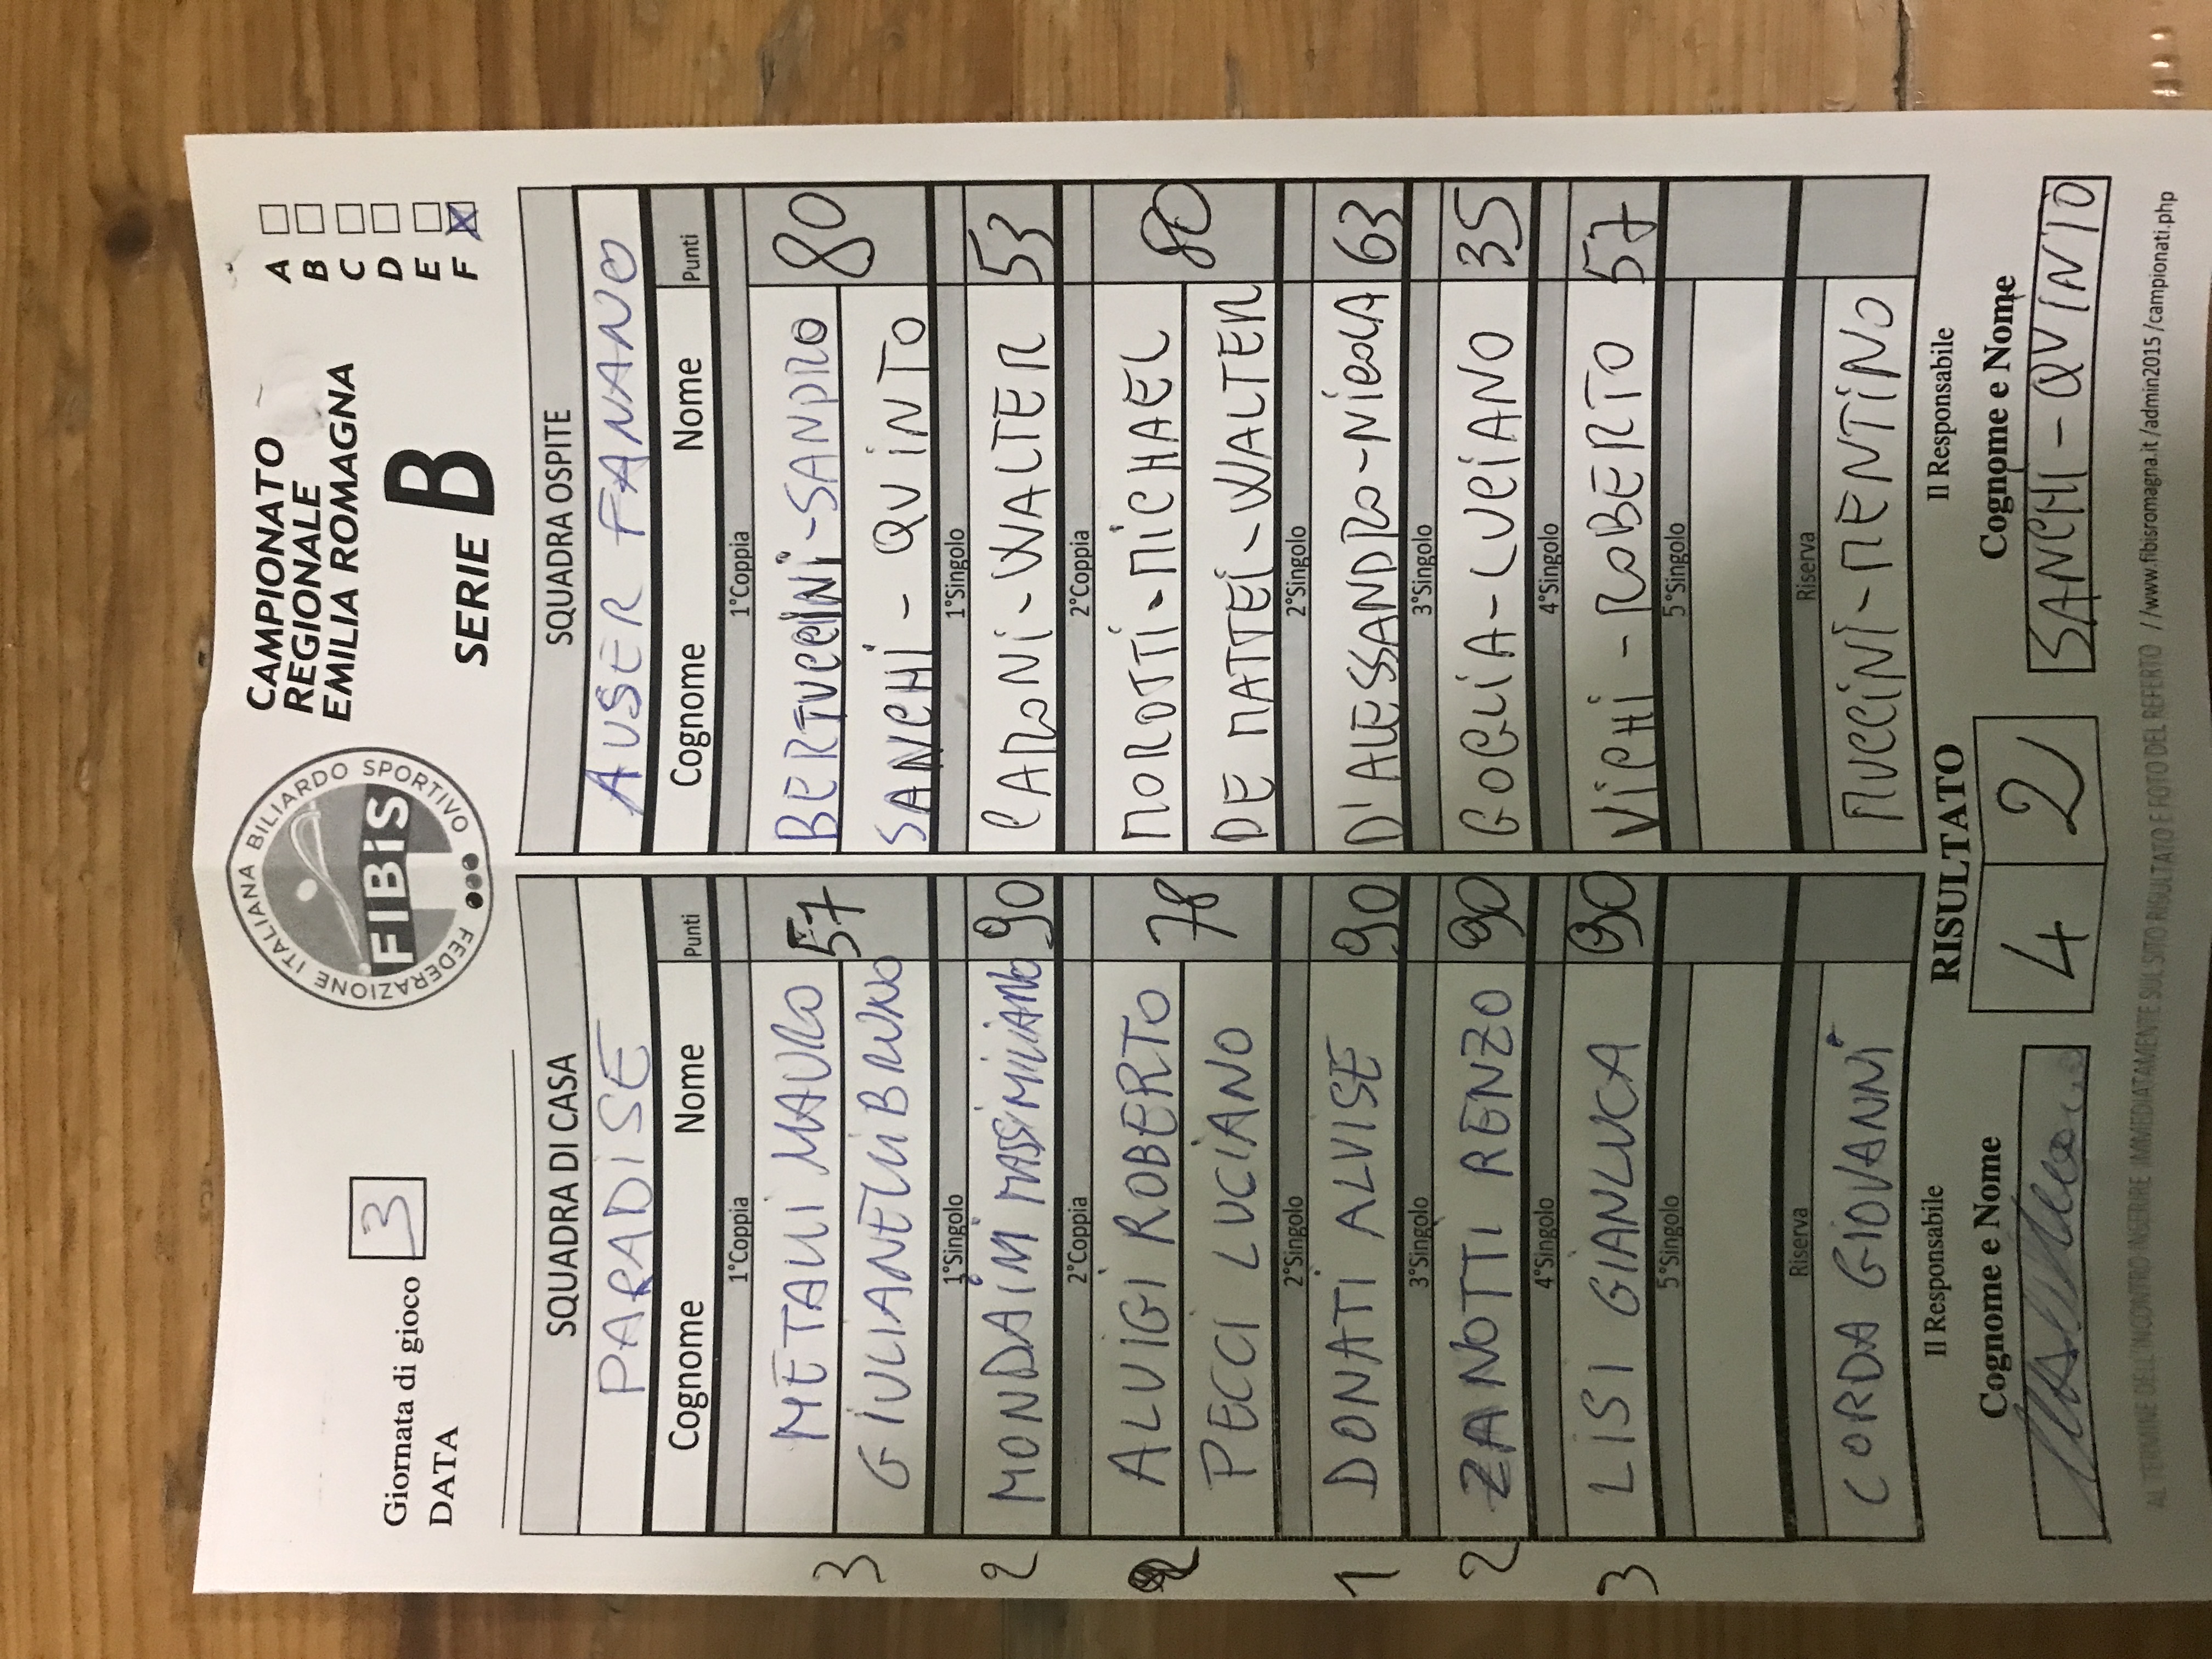 Giornata di gioco 3
DATA
FEDERAZIONE ITALIANA BILIARDO SPORTIVO
FIBiS
CAMPIONATO
REGIONALE
EMILIA ROMAGNA
SERIE B
A
B
C
D
E
F X
SQUADRA DI CASA SQUADRA OSPITE
PARADISE AUSER FANANO
Cognome Nome Punti Cognome Nome Punti
1°Coppia 1°Coppia
3 METALLI MAURO 57 BERTUCCINI - SANDRO 80
GIULIANELLI BRUNO SANCHI - QUINTO
1°Singolo 1°Singolo
2 MONDAINI MASSIMILIANO 90 CARONI - WALTER 53
2°Coppia 2°Coppia
2 ALUIGI ROBERTO 78 MOROTTI - MICHAEL 80
PECCI LUCIANO DE MATTEI - WALTER
2°Singolo 2°Singolo
1 DONATI ALVISE 90 D'ALESSANDRO - NICOLA 63
3°Singolo 3°Singolo
2 ZANOTTI RENZO 90 GOGLIA - LUCIANO 35
4°Singolo 4°Singolo
3 LISI GIANLUCA 90 VICHI - ROBERTO 57
5°Singolo 5°Singolo
Riserva Riserva
CORDA GIOVANNI MUCCINI - MENTINO
Il Responsabile RISULTATO Il Responsabile
Cognome e Nome 4 2 Cognome e Nome
SANCHI - QUINTO
AL TERMINE DELL'INCONTRO INSERIRE IMMEDIATAMENTE SUL SITO RISULTATO E FOTO DEL REFERTO //www.fibisromagna.it/admin2015/campionati.php